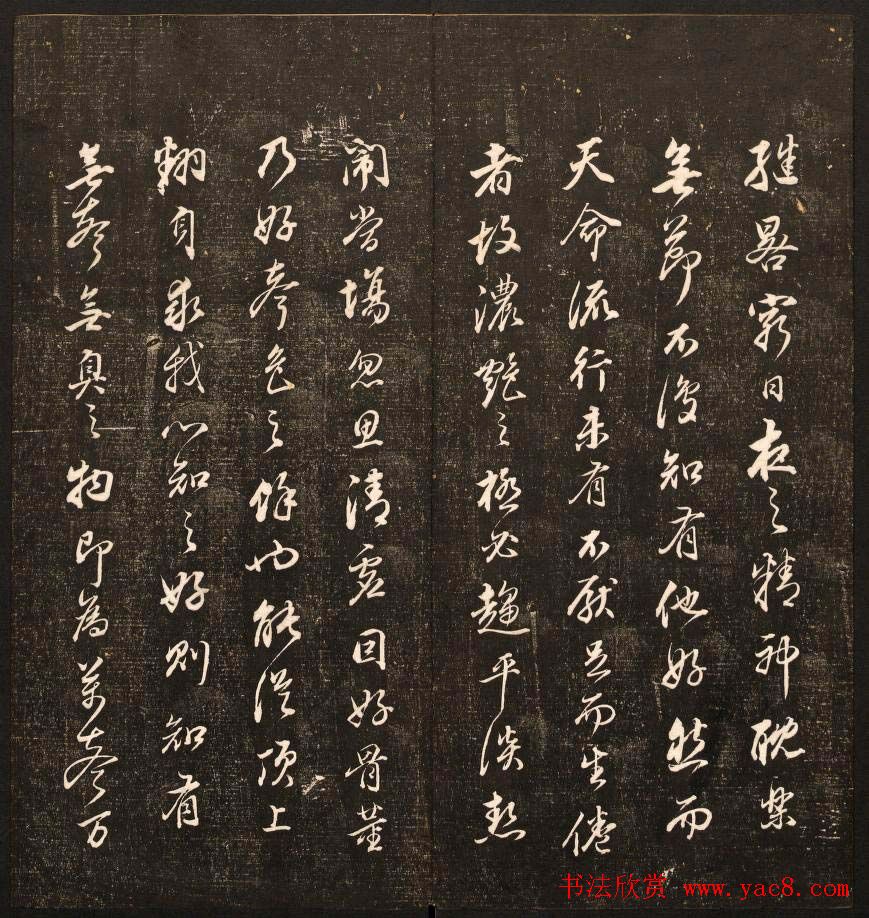 繼晷窮日夜之精神耽樂
無節不復知有他好然而
天命流行未有不厭足而生倦
者故濃艷之極必趨平淡熱
鬧當場忽思清虛因好骨董
乃好聲色之餘也能從頂上
翻身求我心知之好則知有
無聲無臭之物即為萬聲万
书法欣赏 www.yac8.com